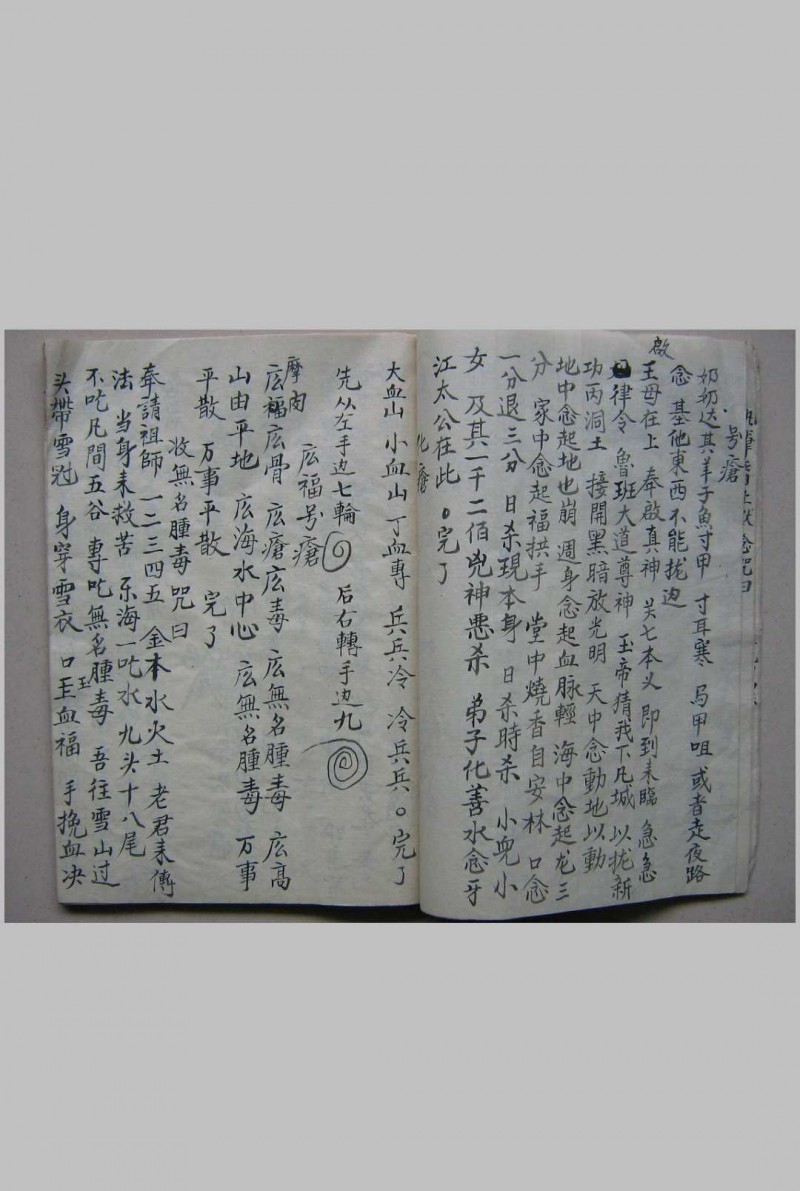 号瘡
奶奶达其羊子魚寸甲 寸耳寒 馬甲咀 或者走夜路
念 基他東西不能拢边
啟
王母在上 奉啟真神 关七本义 即到来臨 急急
律令 魯班大道尊神 玉帝猜我下凡城 以拢新
功丙洞土 接開黑暗放光明 天中念動地以動
地中念起地也崩 週身念起血脉輕 海中念起龙三
分 家中念起福拱手 堂中燒香自安林 口念
一分退三分 日杀現本身 日杀時杀 小兜小
女 及其一千二佰兇神悪杀 弟子化善水念牙
江太公在此 。完了
化瘡
大血山 小血山 丁血專 兵兵冷 冷兵兵。完了
先从左手边七輪 后右轉手边九
庅福号瘡
摩肉
庅福庅骨 庅瘡庅毒 庅無名腫毒 庅高
山由平地 庅海水中心 庅無名腫毒 万事
平散 万事平散 完了
收無名腫毒咒曰
奉請祖師 一二三四五 金木水火土 老君来傳
法 当身来救苦 东海一吃水 九头十八尾
不吃凡間五谷 專吃無名腫毒 吾往雪山过
头帶雪冠 身穿雪衣 口玉血福 手挽血决